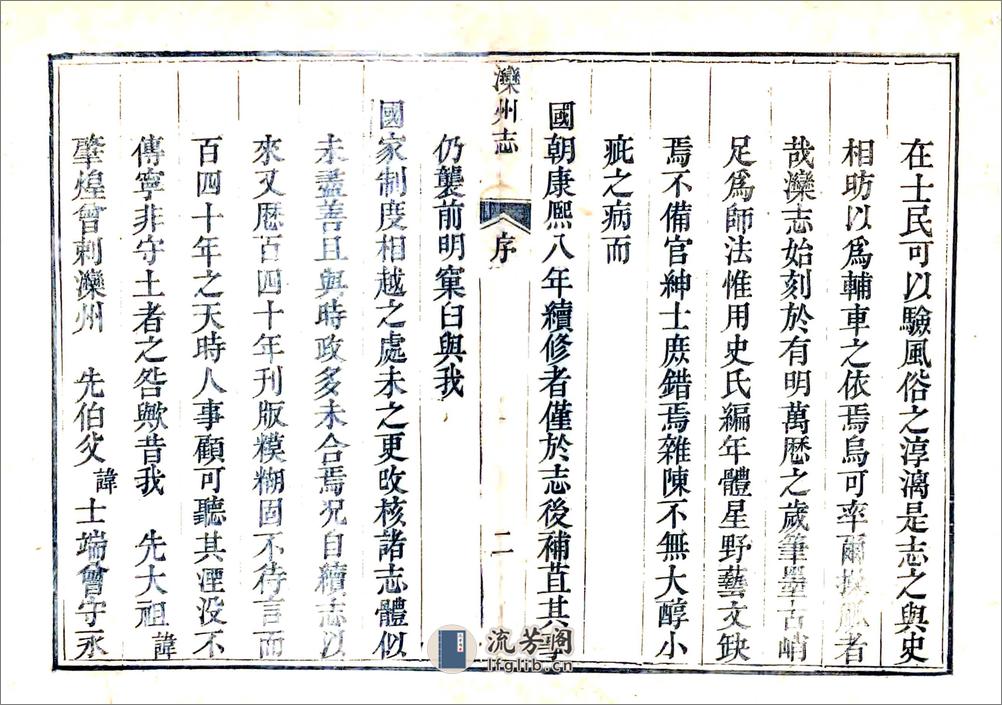 在士民可以驗風俗之淳漓是志之與史
相昉以爲輔車之依焉烏可率爾操觚者
哉灤志始刻於有明萬曆之歲筆墨古峭
足爲師法惟用史氏編年體星野藝文缺
焉不備官紳士庶錯焉雜陳不無大醇小
疵之病而
國朝康熈八年續修者僅於志後補苴其
灤州志
序
二
仍襲前明窠臼與我
國家制度相越之處未之更改核諸志體似
未盡善且與時政多未合焉况自續志以
來又歷百四十年刊版糢糊固不待言而
百四十年之天時人事顧可聽其湮没不
傳寧非守土者之咎歟昔我 先大祖 諱
肇煌曾刺灤州 先伯父 諱 士端曾守永
流芳閣
lfglib.cn